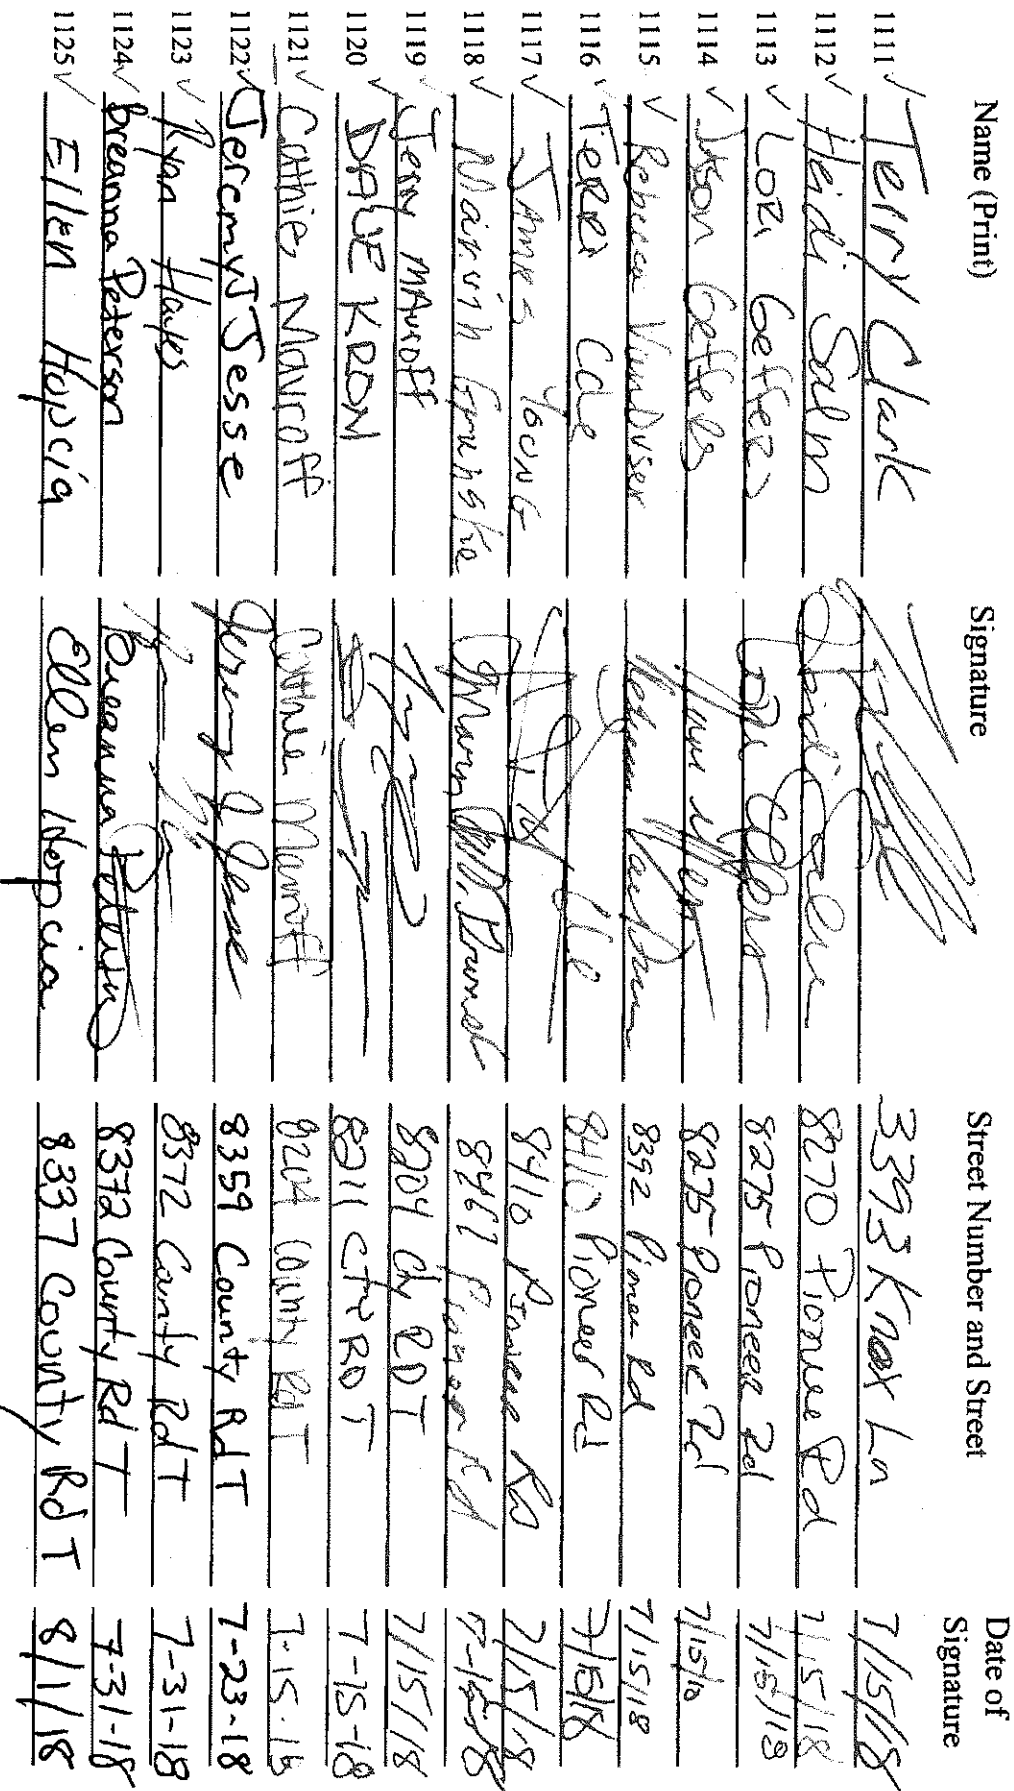 Name (Print) Signature Street Number and Street Date of Signature
1111 ✓ Terry Clark 3393 Knox Ln 7/15/18
1112 ✓ Heidi Salm Heidi Salm 8270 Pioneer Rd 7/15/18
1113 ✓ LORi Geffers Lori Geffers 8275 Pioneer Rd 7/15/18
1114 ✓ Jason Geffers 8275 Pioneer Rd 7/15/18
1115 ✓ Rebecca VanDuser Rebecca 8392 Pioneer Rd 7/15/18
1116 ✓ TERRi Cole Cole 8410 Pioneer Rd 7/15/18
1117 ✓ JAmes YOUNG 8410 Pioneer Rd 7/15/18
1118 ✓ Marvin Marvin 8461 Pioneer Rd 7-15-18
1119 ✓ Jerry MAvroff 8204 Cty RD T 7/15/18
1120 ✓ DALE KROM 8211 CTY RD T 7-15-18
1121 ✓ Cathie Mavroff Cathie Mavroff 8204 County Rd T 7-15-18
1122 ✓ Jeremy J Jesse Jeremy J Jesse 8359 County Rd T 7-23-18
1123 ✓ Ryan Hawkes 8372 County Rd T 7-31-18
1124 ✓ Breanna Peterson Breanna Peterson 8372 County Rd T 7-31-18
1125 ✓ Ellen Hopcia Ellen Hopcia 8337 County Rd T 8/1/18